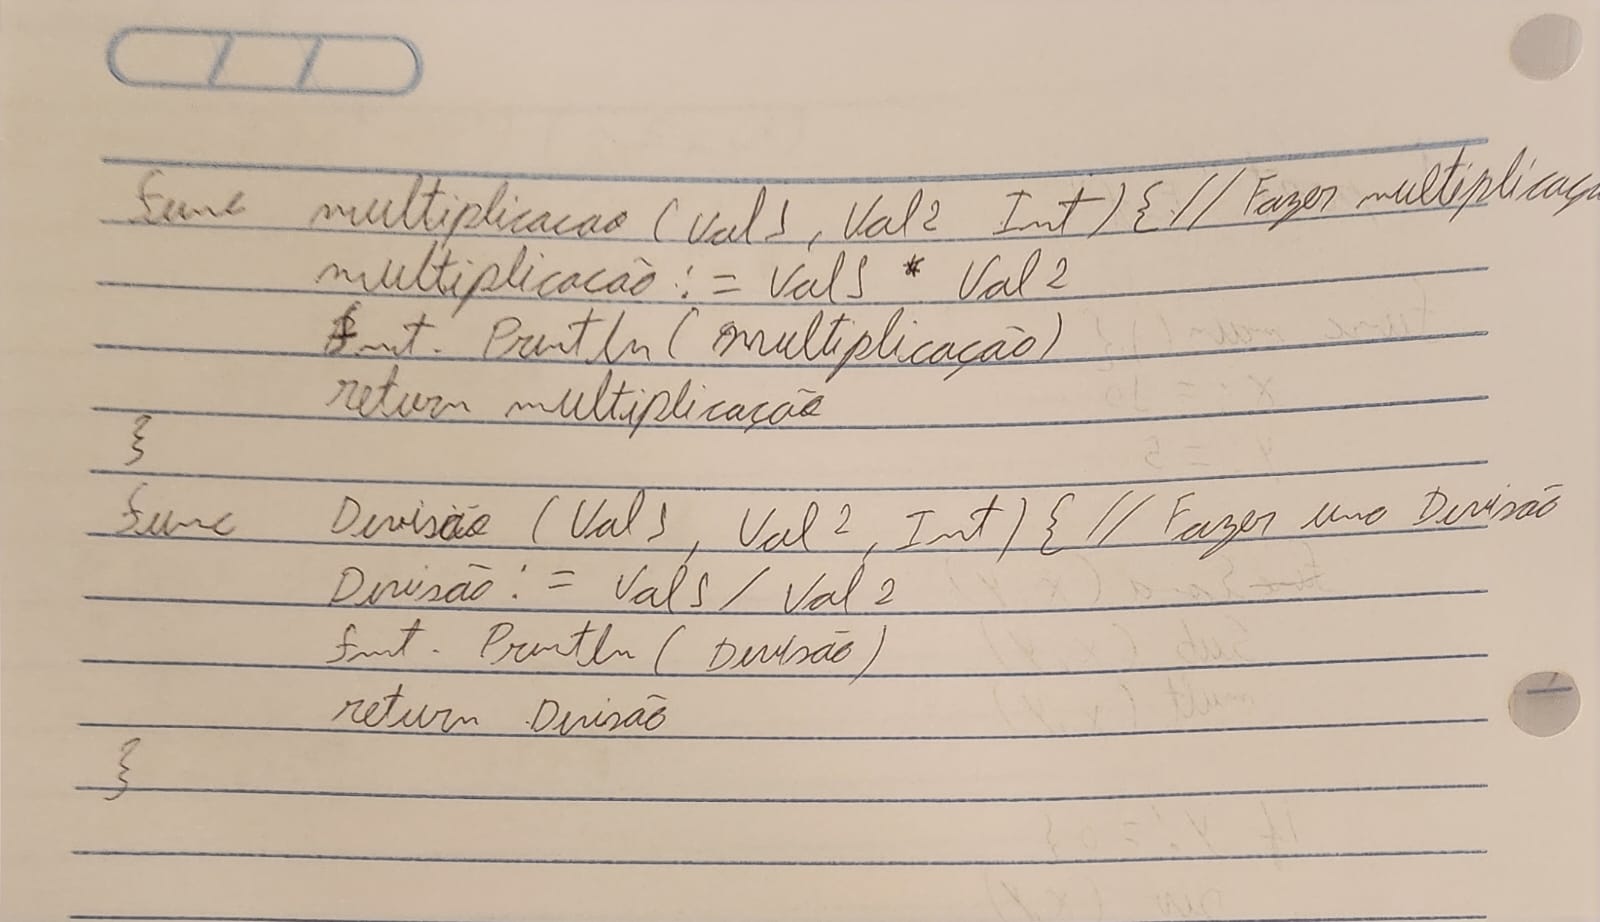 func multiplicacao (Val1, Val2 Int) { // Fazer multiplicaçã
multiplicacão := Val1 * Val2
fmt. Println( multiplicação)
return multiplicação
}
func Divisão (Val1, Val2, Int) { // Fazer uma Divisão
Divisão := Val1 / Val2
fmt. Println ( Divisão)
return Divisão
}